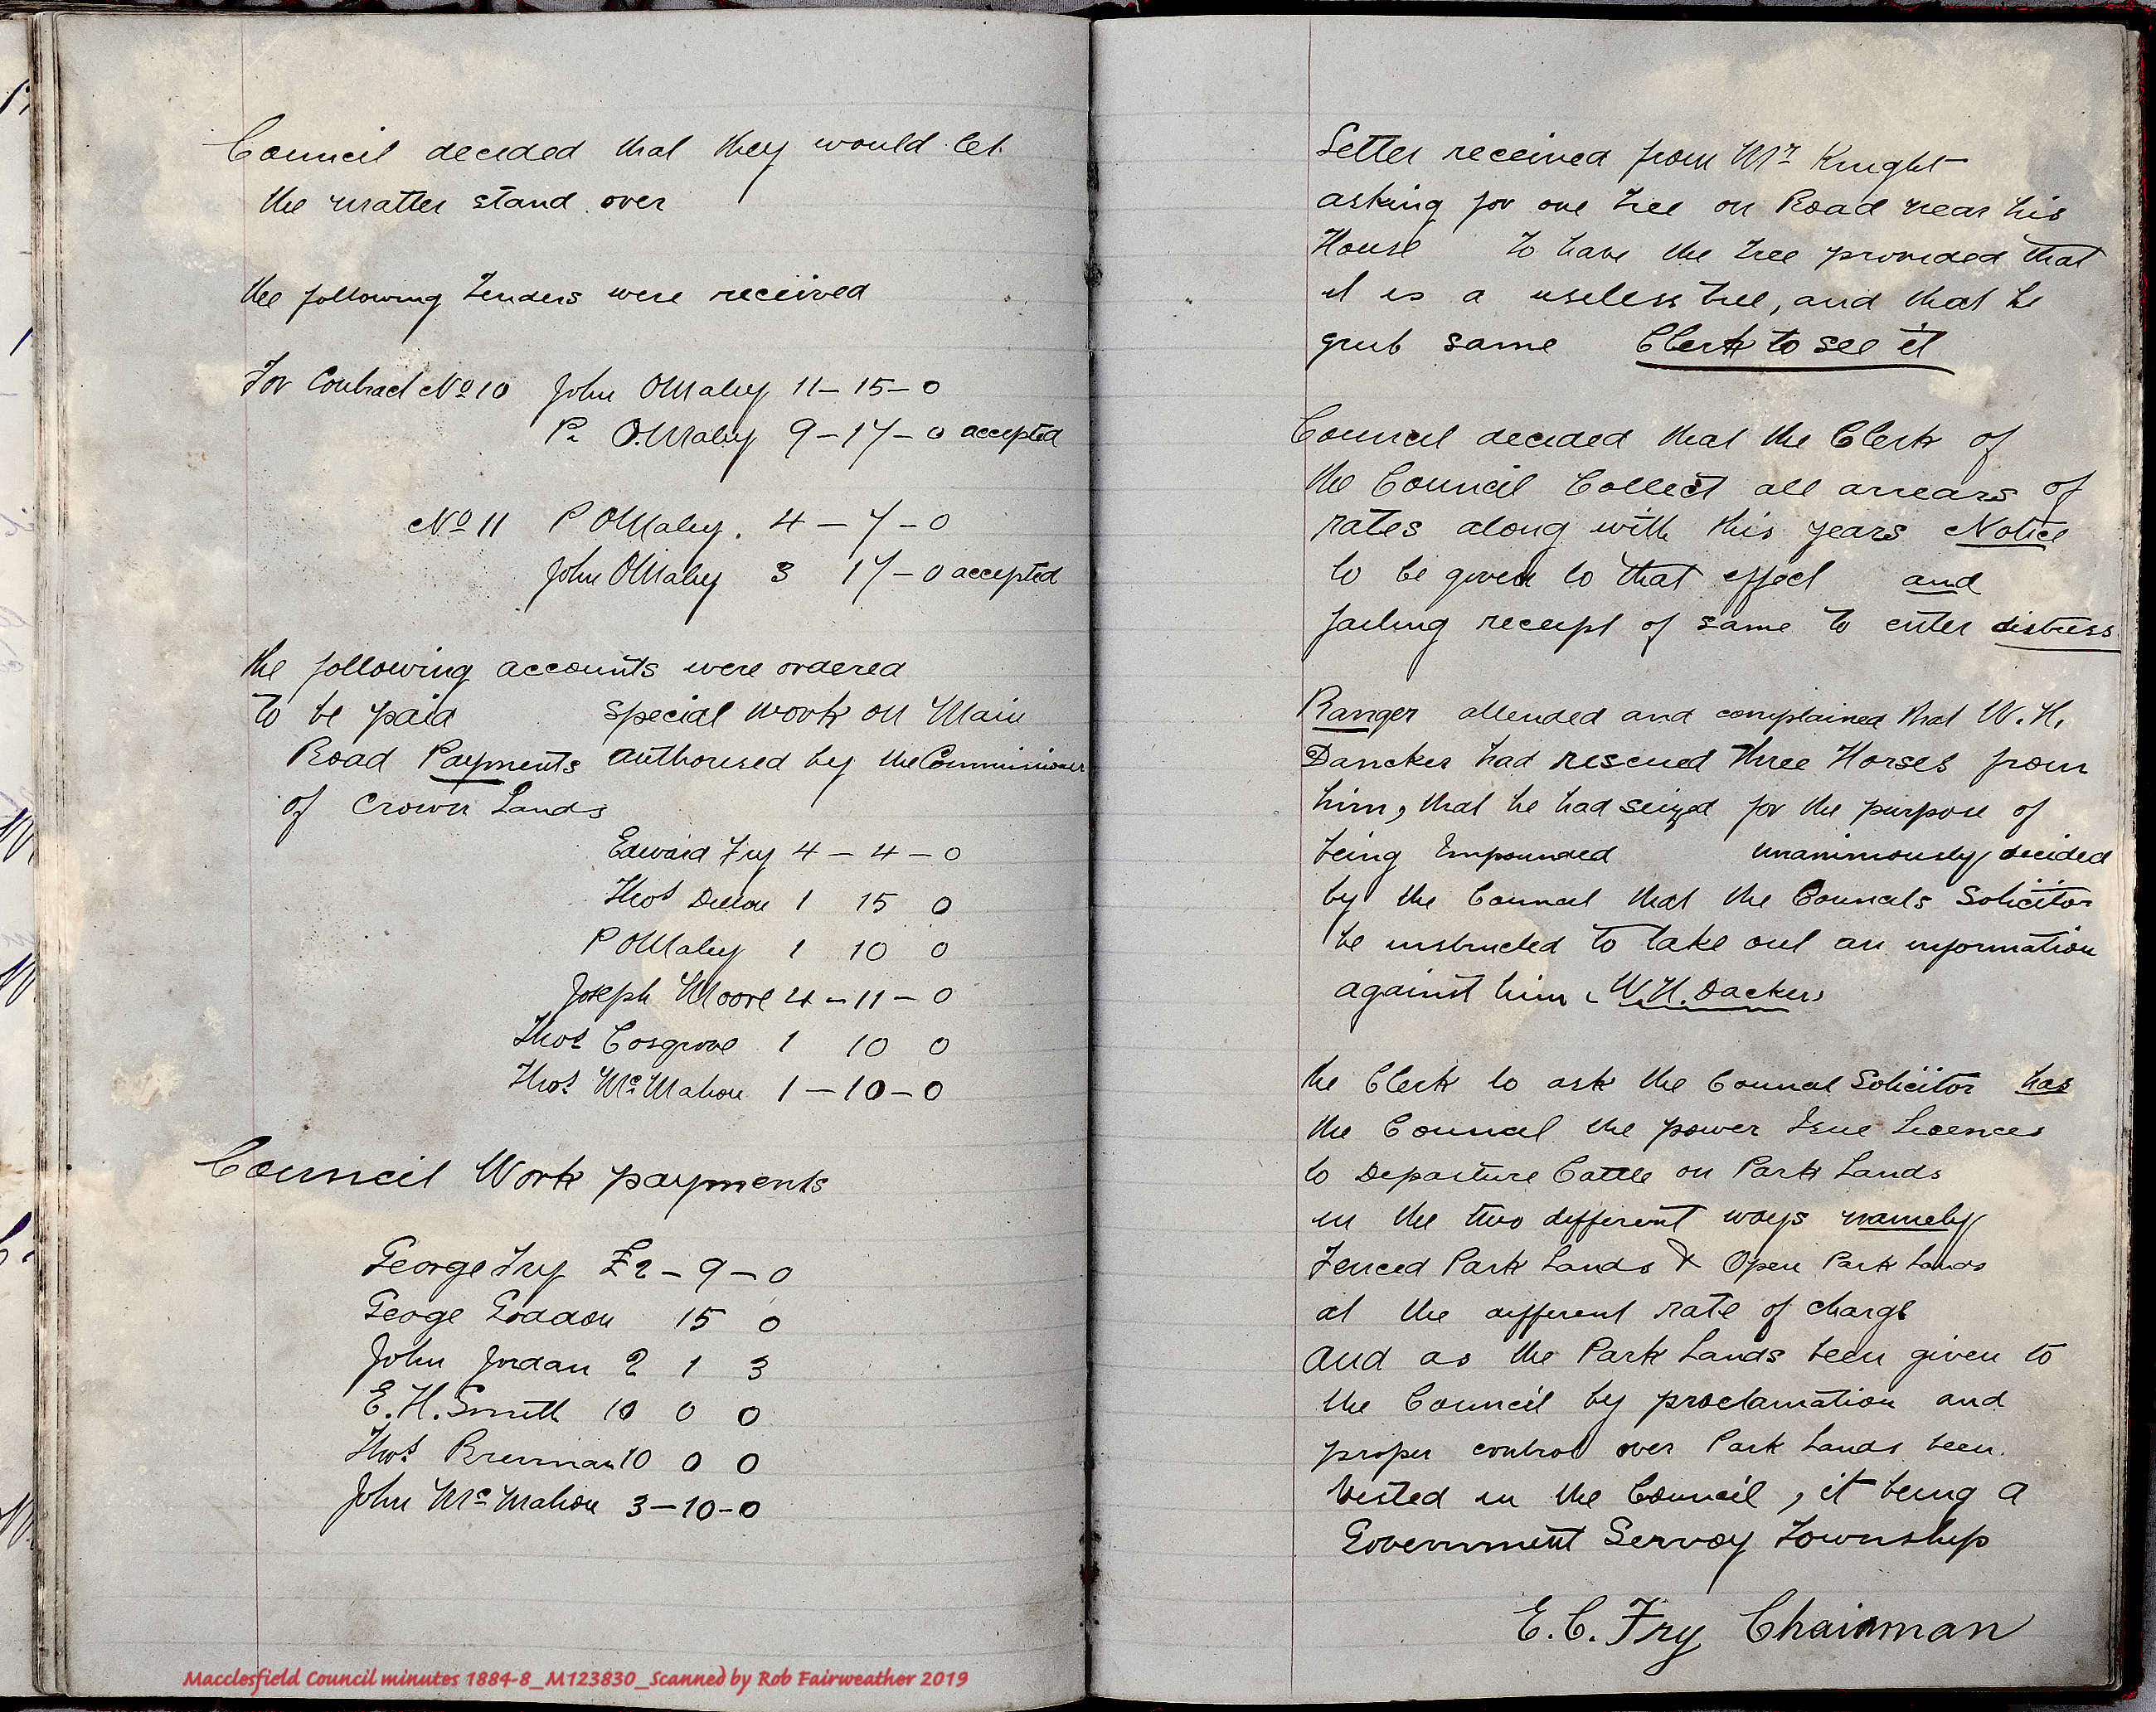 Council decided that they would let
the matter stand over
the following Tenders were received
For Contract No 10 John OMaley 11 – 15 – 0
P. O.Maley 9 – 17 – 0 accepted
No 11 P OMaley. 4 – 7 – 0
John OMaley 3 17 – 0 accepted
the following accounts were ordered
To be paid special work on Main
Road Payments authorised by the Commissioner
of Crown Lands
Edward Fry 4 – 4 – 0
Thos Dillon 1 15 0
P OMaley 1 10 0
Joseph Moore 4 – 11 – 0
Thos Cosgrove 1 10 0
Thos McMahon 1 – 10 – 0
Council Work payments
George Fry £2 – 9 – 0
Geoge Goddon 15 0
John Jordan 2 1 3
E. H. Smith 10 0 0
Thos Brennan 10 0 0
John McMahon 3 – 10 – 0
Macclesfield Council minutes 1884-8_M123830_Scanned by Rob Fairweather 2019
Letter received from Mr Knight
asking for one Tree on Road near his
House To have the Tree provided that
it is a useless tree, and that he
grub same Clerk to see it
Council decided that the Clerk of
the Council Collect all arrears of
rates along with this years Notice
to be given to that effect and
failing receipt of same to enter distress
Ranger attended and complained that W. H.
Dancker had rescued three Horses from
him, that he had seized for the purpose of
being Impounded unanimously decided
by the Council that the Councils Solicitor
be instructed to take out an information
against him W. H. Dackers
the Clerk to ask the Council Solicitor has
the Council the power Isue Licences
to Depasture Cattle on Park Lands
in the two different ways namely
Fenced Park Lands & Open Park Lands
at the different rate of charge
and as the Park Lands been given to
the Council by proclamation and
proper control over Park Lands been.
Vested in the Council, it being a
Government Servay Township
E. C. Fry Chairman